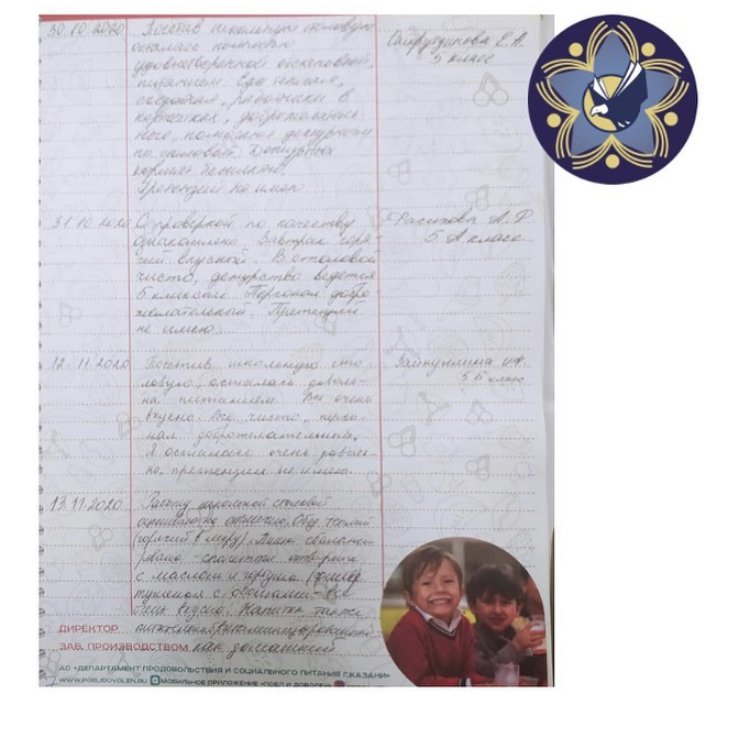 30.10.2020 Посетив школьную столовую
осталась полностью
удовлетворенной обстановкой,
питанием. Еда теплая,
съедобная, работники в
перчатках, доброжелатель
ные, помогают дежурным
по столовой. Дежурных
кормят бесплатно.
Претензий не имею.
Сайфутдинова Е. А.
5 класс
31.10.2020 С проверкой по качеству
ознакомлена. Завтрак горя-
чий вкусный. В столовой
чисто, дежурство ведется
5 классами. Персонал добро-
желательский. Претензий
не имею.
А. Р.
5 А класс
12.11.2020 Посетив школьную сто-
ловую, осталась доволь-
на питанием. Все очень
вкусно. Все чисто, персо-
нал доброжелательный.
Я осталась очень доволь-
на, претензии не имею.
Зайнуллина
5 Б класс
13.11.2020 Работу школьной столовой
оцениваю на отлично. Обед теплый
(горячий в меру).
спагетти отварные
с маслом и
тушеная с овощами - все
очень вкусно. Напиток также
как домашний
ДИРЕКТОР
ЗАВ. ПРОИЗВОДСТВОМ
АО «ДЕПАРТАМЕНТ ПРОДОВОЛЬСТВИЯ И СОЦИАЛЬНОГО ПИТАНИЯ Г.КАЗАНИ»
WWW.POELIDOVOLEN.RU МОБИЛЬНОЕ ПРИЛОЖЕНИЕ «ПОЕЛ И ДОВОЛЕН»